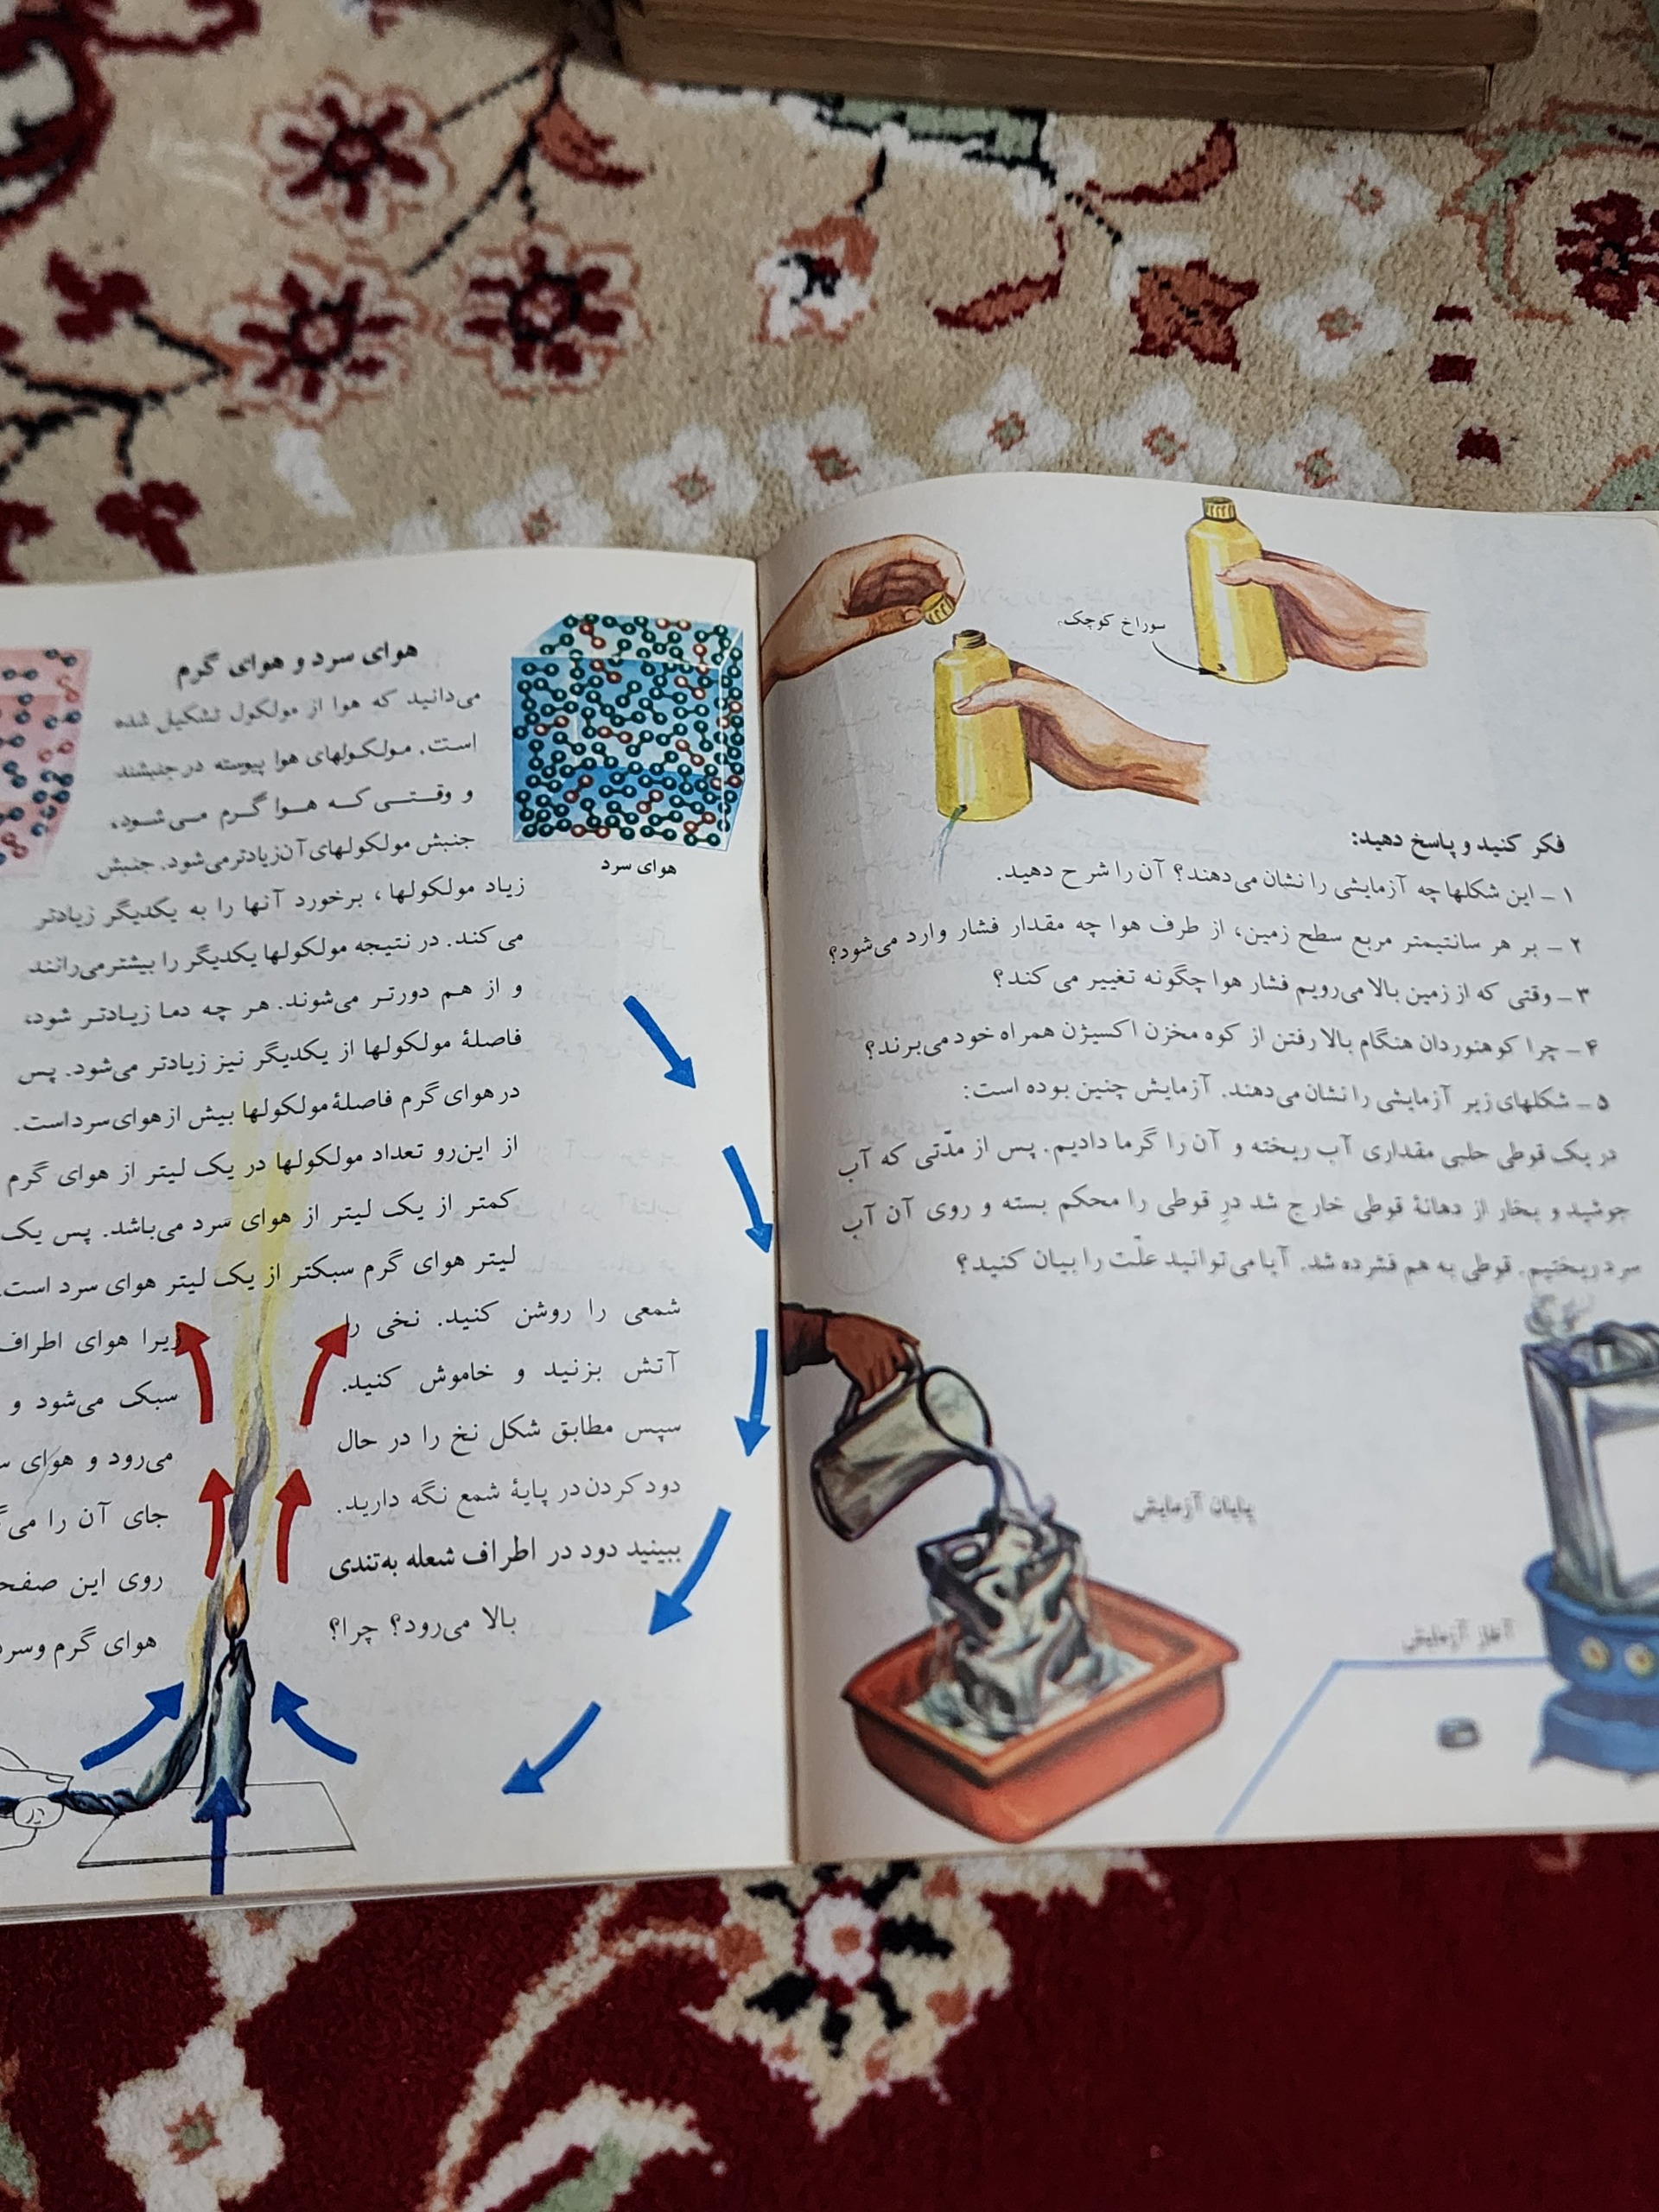 سوراخ کوچک
فکر کنید و پاسخ دهید:
۱ ـ این شکلها چه آزمایشی را نشان می‌دهند؟ آن را شرح دهید.
۲ ـ بر هر سانتیمتر مربع سطح زمین، از طرف هوا چه مقدار فشار وارد می‌شود؟
۳ ـ وقتی که از زمین بالا می‌رویم فشار هوا چگونه تغییر می کند؟
۴ ـ چرا کوهنوردان هنگام بالا رفتن از کوه مخزن اکسیژن همراه خود می‌برند؟
۵ ـ شکلهای زیر آزمایشی را نشان می‌دهند. آزمایش چنین بوده است:
در یک قوطی حلبی مقداری آب ریخته و آن را گرما دادیم. پس از مدّتی که آب
جوشید و بخار از دهانهٔ قوطی خارج شد درِ قوطی را محکم بسته و روی آن آب
سرد ریختیم. قوطی به هم فشرده شد. آیا می‌توانید علّت را بیان کنید؟
پایان آزمایش
آغاز آزمایش
هوای سرد و هوای گرم
می‌دانید که هوا از مولکول تشکیل شده
است. مولکولهای هوا پیوسته در جنبشند
و وقتی که هوا گرم می‌شود،
جنبش مولکولهای آن زیادتر می‌شود. جنبش
هوای سرد
زیاد مولکولها، برخورد آنها را به یکدیگر زیادتر
می کند. در نتیجه مولکولها یکدیگر را بیشتر می‌رانند
و از هم دورتر می‌شوند. هر چه دما زیادتر شود،
فاصلهٔ مولکولها از یکدیگر نیز زیادتر می‌شود. پس
در هوای گرم فاصلهٔ مولکولها بیش از هوای سرد است.
از این‌رو تعداد مولکولها در یک لیتر از هوای گرم
کمتر از یک لیتر از هوای سرد می‌باشد. پس یک
لیتر هوای گرم سبکتر از یک لیتر هوای سرد است.
شمعی را روشن کنید. نخی را
آتش بزنید و خاموش کنید.
سپس مطابق شکل نخ را در حال
دود کردن در پایهٔ شمع نگه دارید.
ببینید دود در اطراف شعله به‌تندی
بالا می‌رود؟ چرا؟
زیرا هوای اطراف
سبک می‌شود و
می‌رود و هوای
جای آن را
روی این
هوای گرم وسرد